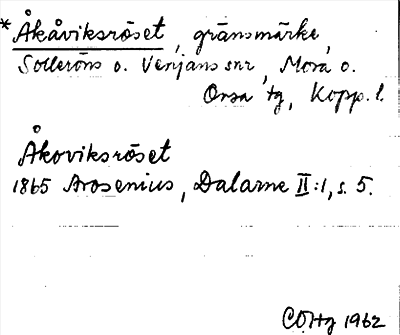 *Åkåviksröset, gränsmärke,
Solleröns o. Venjans snr, Mora o.
Orsa tg, Kopp. l.
Åkoviksröset
1865 Arosenius, Dalarne II:1, s. 5.
COHg 1962